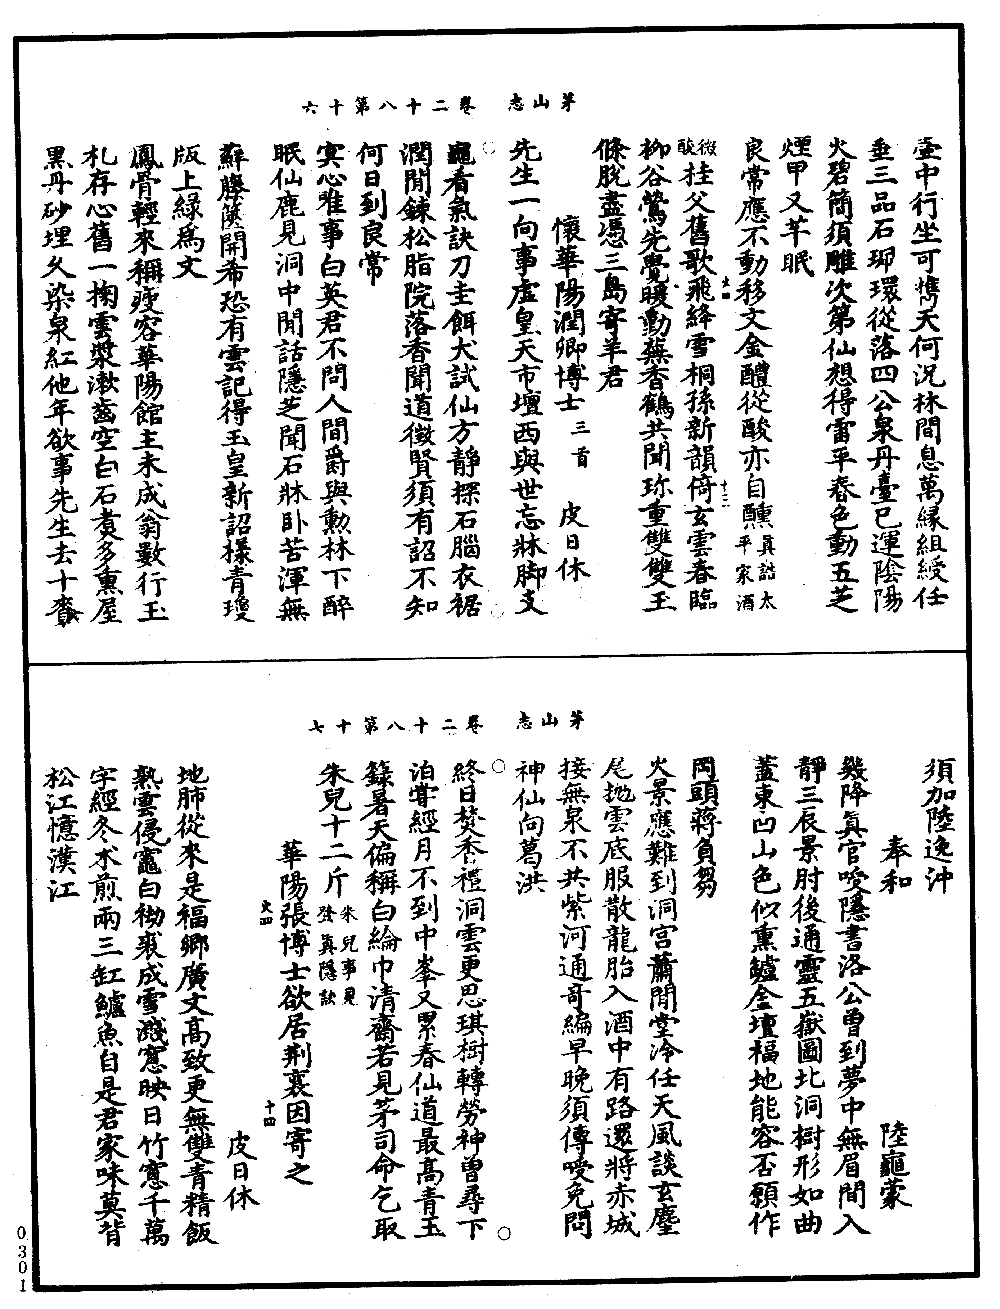 茅山志　卷二十八第十六
壺中行坐可㩦天何況林間息萬緣組綬任
垂三品石珮環從落四公泉丹臺已運陰陽
火碧簡須雕次第仙想得雷平春色動五芝
煙甲又芊眠
良常應不動移文金醴從酸亦自醺真誥太平家酒
微酸桂父舊歌飛絳雪桐孫新韻倚玄雲春臨
柳谷鶯先覺暖動蕪香鶴共聞珎重雙雙玉
條脫盡憑三島寄羊君
懷華陽潤卿博士三首　皮日休
先生一向事虛皇天市壇西與世忘牀脚支
龜看氣訣刀圭餌犬試仙方靜探石腦衣裾
潤閒鍊松脂院落香聞道徵賢須有詔不知
何日到良常
冥心唯事白英君不問人間爵與勳林下醉
眠仙鹿見洞中閒話隱芝聞石牀卧苦渾無
蘚縢篋開希恐有雲記得玉皇新詔樣青瓊
版上綠爲文
鳳骨輕來稱瘦容華陽館主未成翁數行玉
札存心舊一掬雲漿漱齒空白石煑多熏屋
黑丹砂埋久染泉紅他年欲事先生去十賚
茅山志　卷二十八第十七
須加陸逸沖
奉和　陸龜蒙
幾降真官唆隱書洛公曾到夢中無眉間入
靜三辰景肘後通靈五嶽圖北洞樹形如曲
蓋東凹山色似熏鑪金壇福地能容否願作
岡頭蔣負芻
火景應難到洞宮蕭閒堂冷任天風談玄麈
尾拋雲底服散龍胎入酒中有路還將赤城
接無泉不共紫河通哥編早晚須傳唆免問
神仙向葛洪
終日焚香禮洞雲更思琪樹轉勞神曾尋下
泊甞經月不到中峯又累春仙道最高青玉
籙暑天偏稱白綸巾清齋若見茅司命乞取
朱兒十二斤朱兒事見登真隱訣
華陽張博士欲居荆襄因寄之
皮日休
地肺從來是福鄉廣文高致更無雙青精飯
熟雲侵竈白袎裘成雪濺窻映日竹窻千萬
字經冬朮煎兩三缸鱸魚自是君家味莫背
松江憶漢江
0301